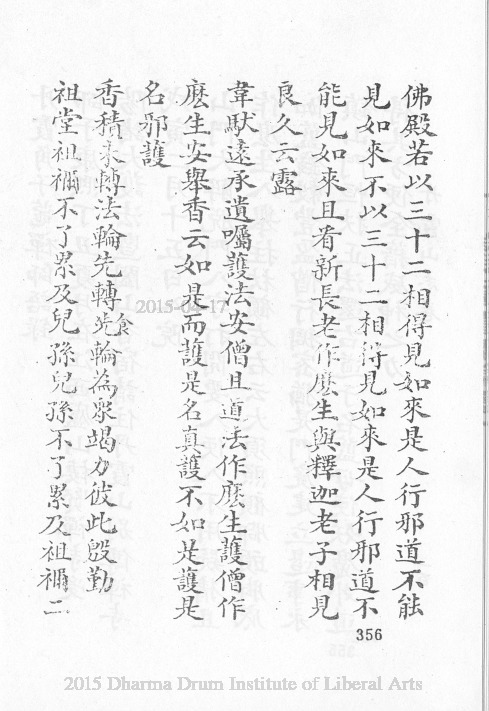 佛殿若以三十二相得見如來是人行邪道不能
見如來不以三十二相得見如來是人行邪道不
能見如來且看新長老作麼生與釋迦老子相見
良久云露
韋馱遠承遺囑護法安僧且道法作麼生護僧作
麼生安舉香云如是而護是名真護不如是護是
名邪護
香積未轉法輪先轉食輪為眾竭力彼此慇勤
祖堂祖禰不了累及兒孫兒孫不了累及祖禰二
356
2015-04-17
2015 Dharma Drum Institute of Liberal Arts